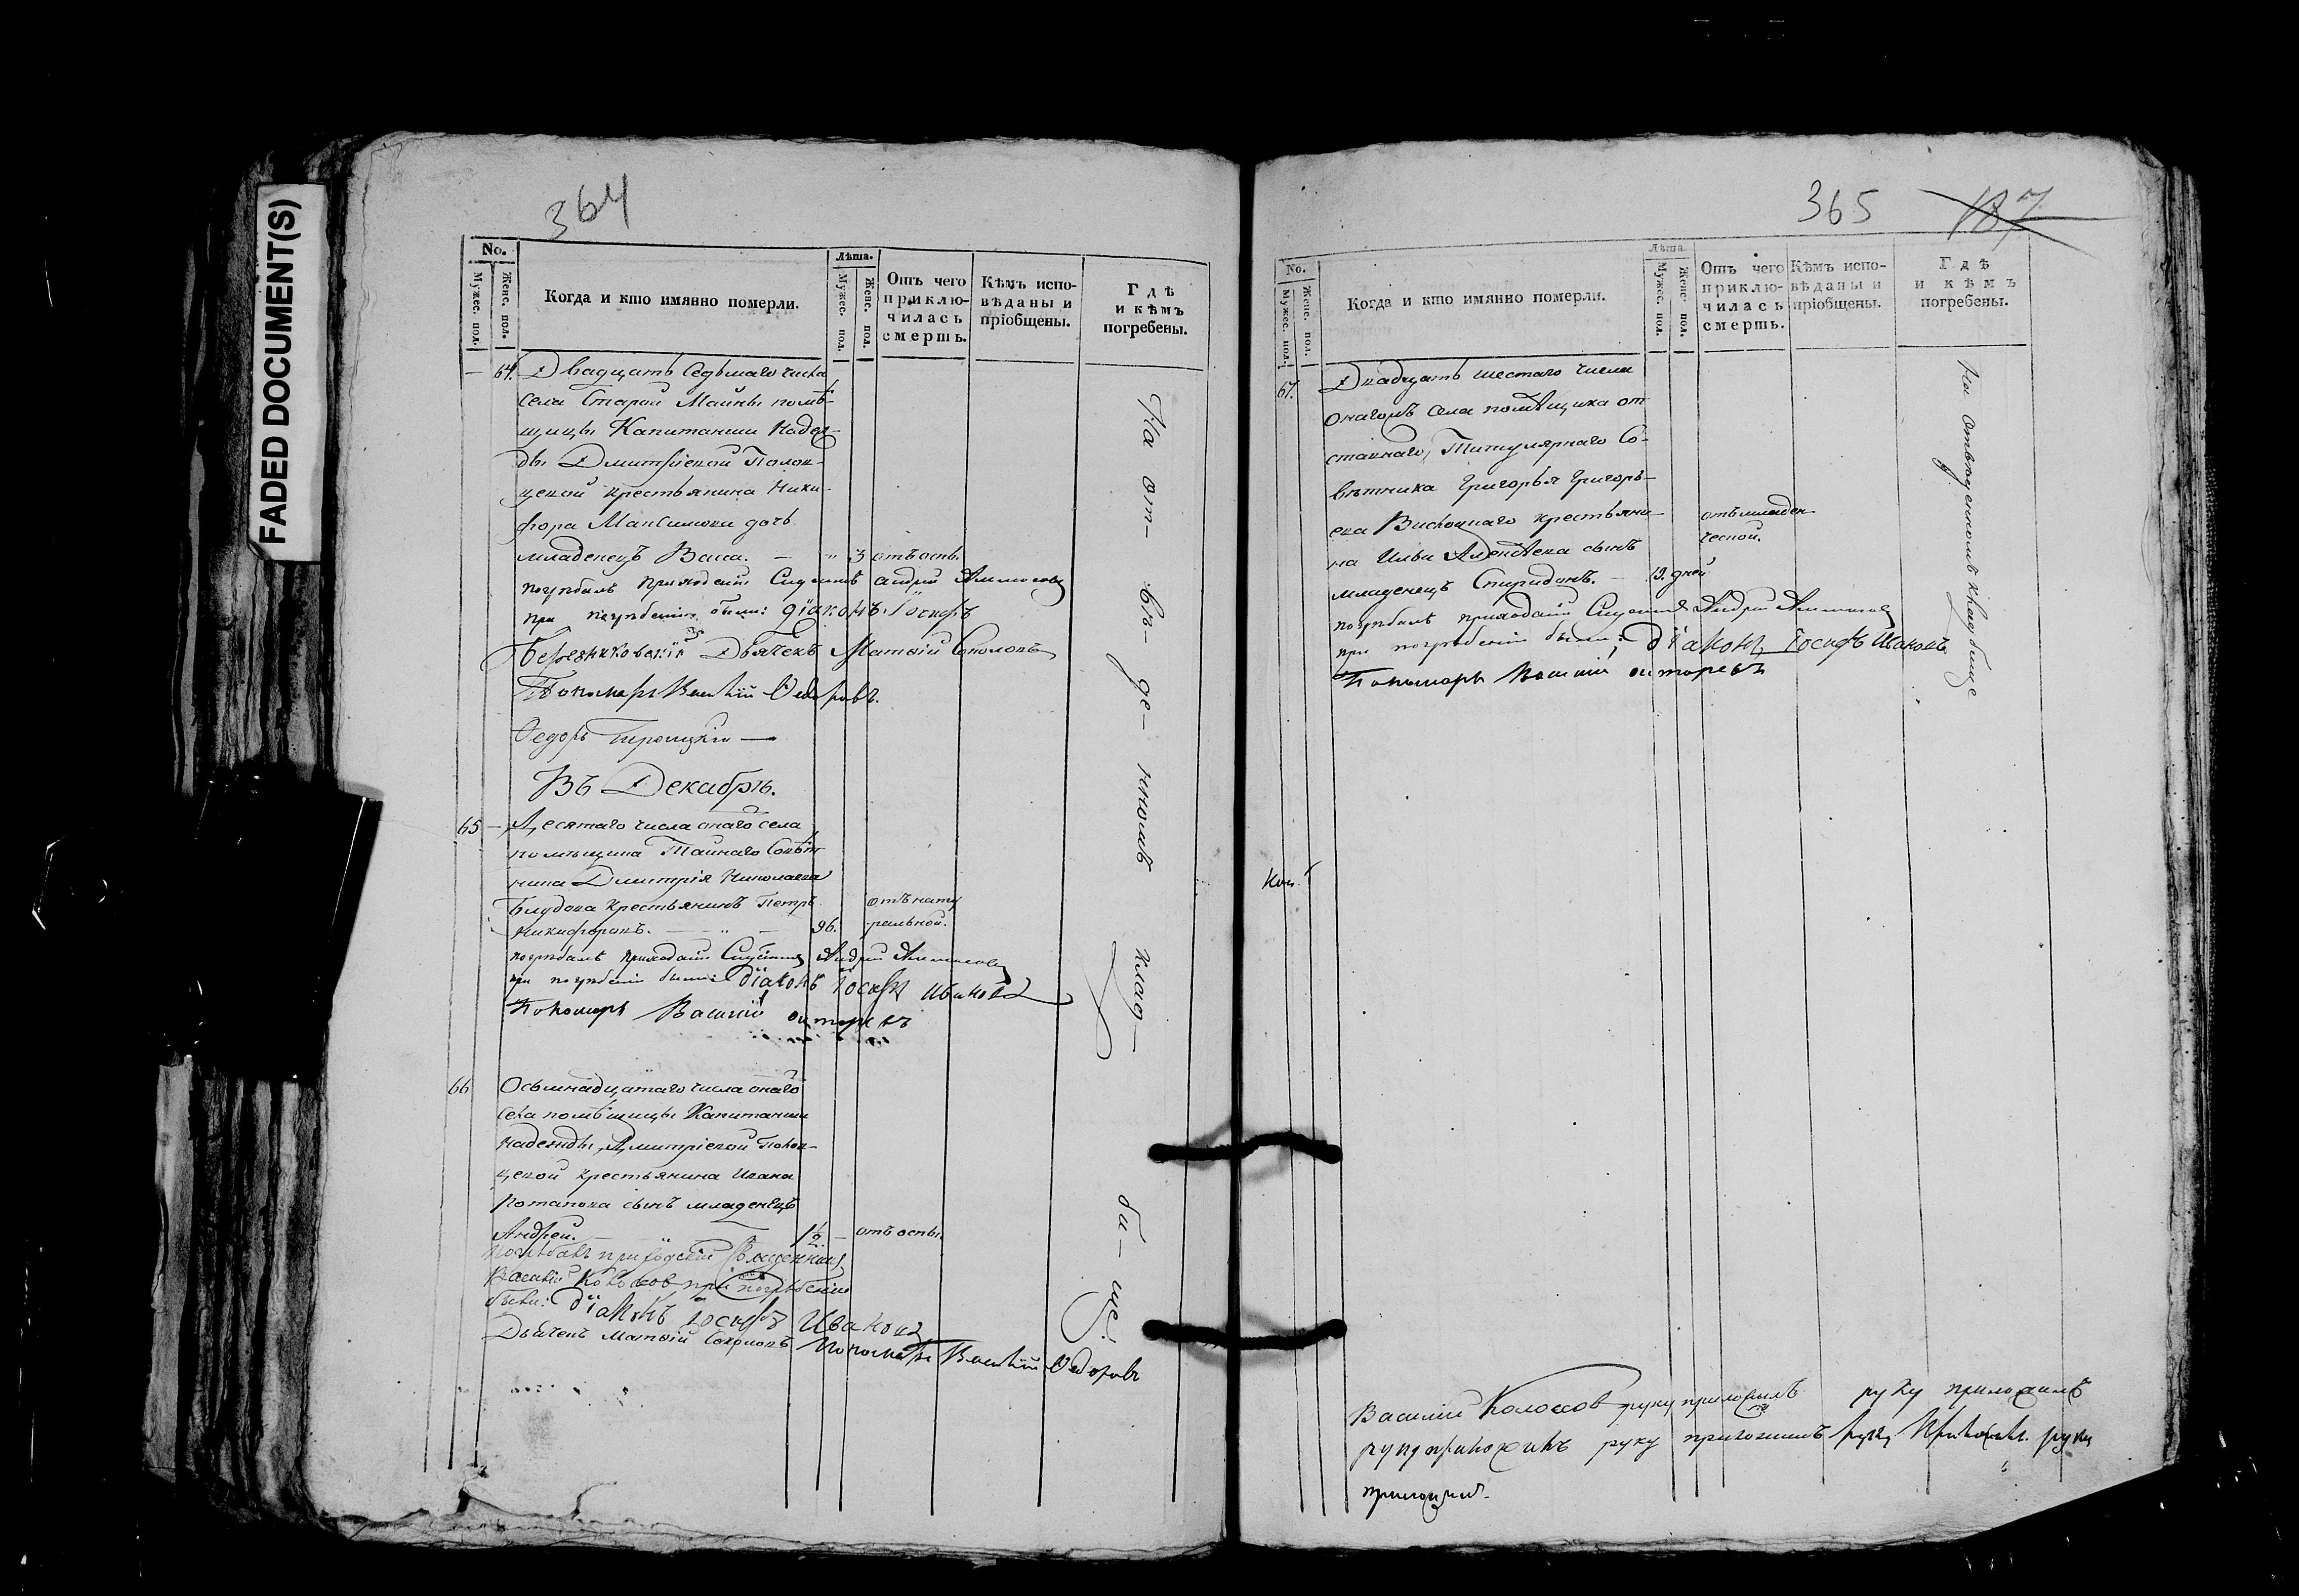 FADED DOCUMENT(S)
364
No.
Мужес. пол.
Женс. пол.
Когда и кто имянно померли.
Лѣта.
Мужес. пол.
Женс. пол.
Отъ чего приклю-
чилась
смерть.
Кѣмъ испо-
вѣданы и
пріобщены.
Гдѣ
и кѣмъ
погребены.
— 64. Двадцать Седьмаго числа
села Старой Майны помѣ-
щицы Капитанши Надеж-
ды Дмитріевой Полон-
ской крестьянина Ники-
фора Максимова дочь
младенецъ Васса. — " 3 отъ оспы.
погребалъ приходскій Священникъ Андрей
при погребеніи были: діаконъ Іосифъ
Дьячекъ Матвій Соколовъ
Пономарь Василій Ѳедоровъ.
Ѳедоръ Троицкій —
Въ Декабрѣ.
65 — Десятаго числа онаго села
помѣщика Тайнаго Совѣт-
ника Дмитрія Николаева
Блудова крестьянинъ Петръ
Никифоровъ. — " — 96. отъ нату
ральной.
погребалъ приходскій Священникъ Андрей
при погребеніи были: діаконъ Іосифъ Ивановъ
Пономарь Василій
66 Осьмнадцатаго числа онаго
села помѣщицы Капитанши
Надежды Дмитріевой Полон-
ской крестьянина Ивана
Потапова сынъ младенецъ
Андрей. — 1½. — отъ оспы.
Погребалъ приходскій Священникъ
Василій Колосовъ при погребеніи
были: діаконъ Іосифъ Ивановъ
Дьячекъ Матвій Соколовъ Пономарь Василій Ѳедоровъ
На от- ве- де- нномъ клад- би- ще.
365 187
No.
Мужес. пол.
Женс. пол.
Когда и кто имянно померли.
Лѣта.
Мужес. пол.
Женс. пол.
Отъ чего
приклю-
чилась
смерть.
Кѣмъ испо-
вѣданы и
пріобщены.
Гдѣ
и кѣмъ
погребены.
67. Двадцать шестаго числа
онагожъ села помѣщика от
ставнаго, Титулярнаго Со-
вѣтника Григорья Григорь-
ева крестьяни-
на Ильи Алексѣева сынъ
младенецъ Спиридонъ. — 12. дней
отъ младен-
ческой.
погребалъ приходскій Священникъ Андрей
при погребеніи были: діаконъ Іосифъ Ивановъ
Пономарь Василій
На отведенномъ кладбище
Василій Колосов руку приложилъ руку приложилъ
руку приложилъ руку приложилъ руку приложилъ. руку
приложилъ.